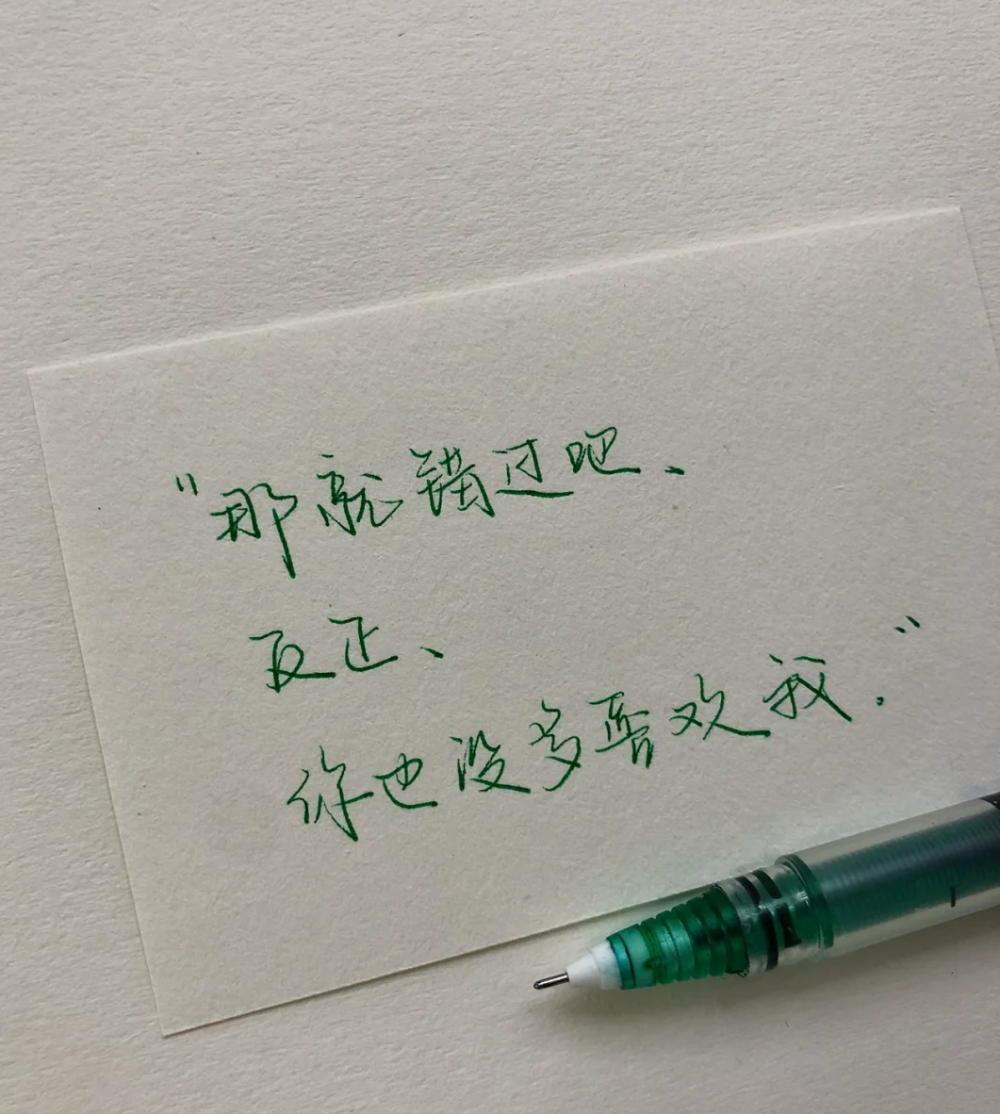 “那就错过吧、
反正、
你也没多喜欢我.”